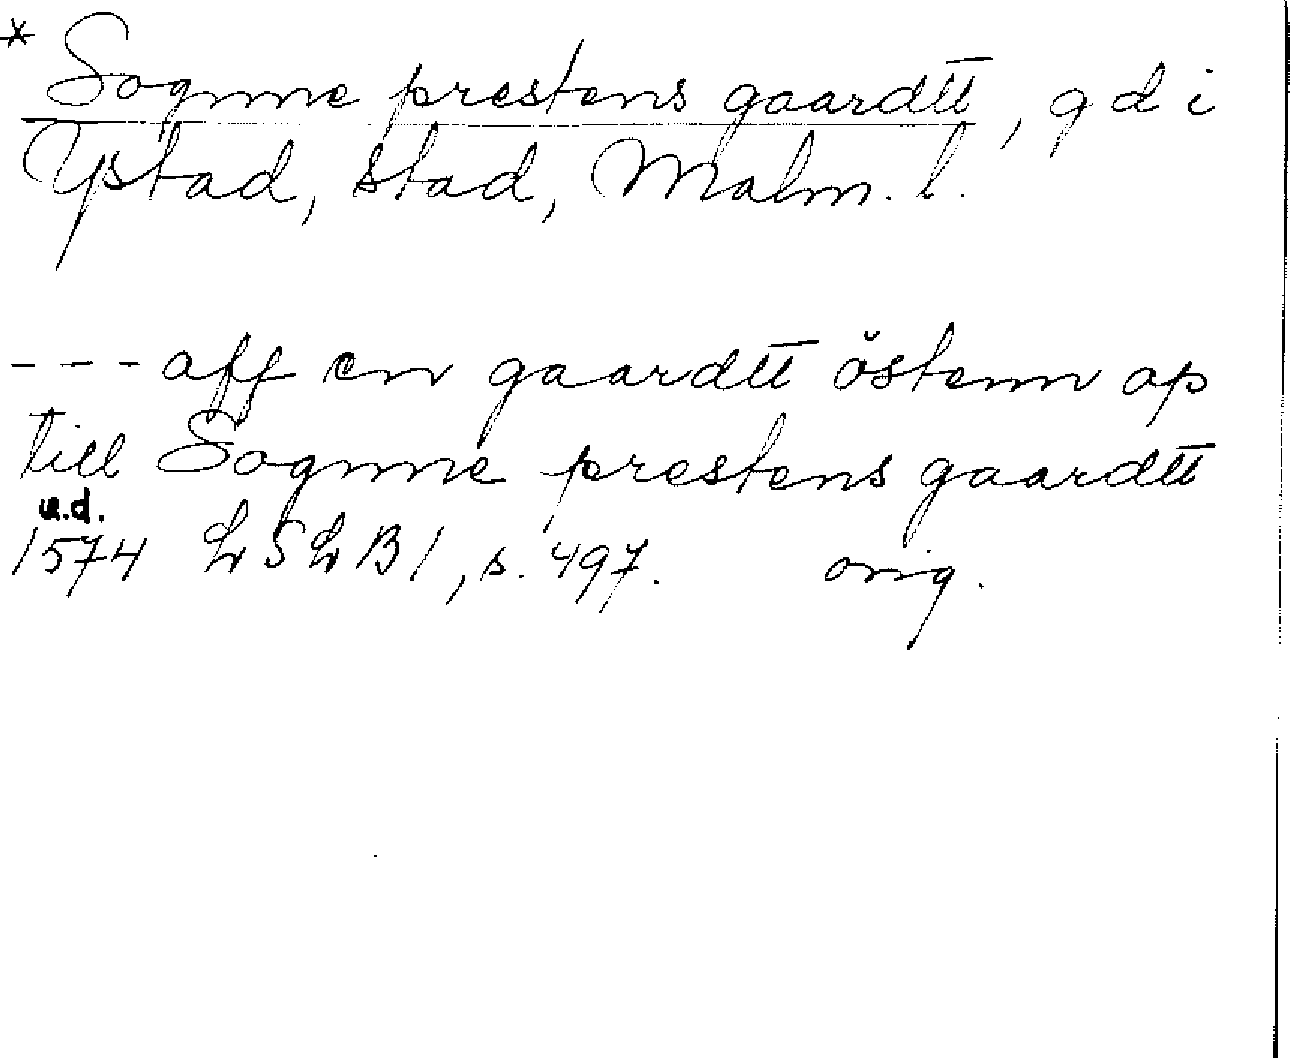 * Sognne prestens gaardtt, gd i
Ystad, stad, Malm. l.
--- aff en gaardtt östenn op
till Sognne prestens gaardtt
u.d.
1574 LSLB1, s. 497. orig.